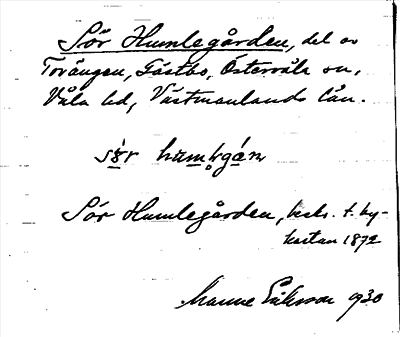 Sör Humlegården, del av
Torängen, Tästbo, Östervåla sn,
Våla hd, Västmanlands län.
Sör Humlegården, beskr. t. by-
kartan 1872
Manne Eriksson 1930